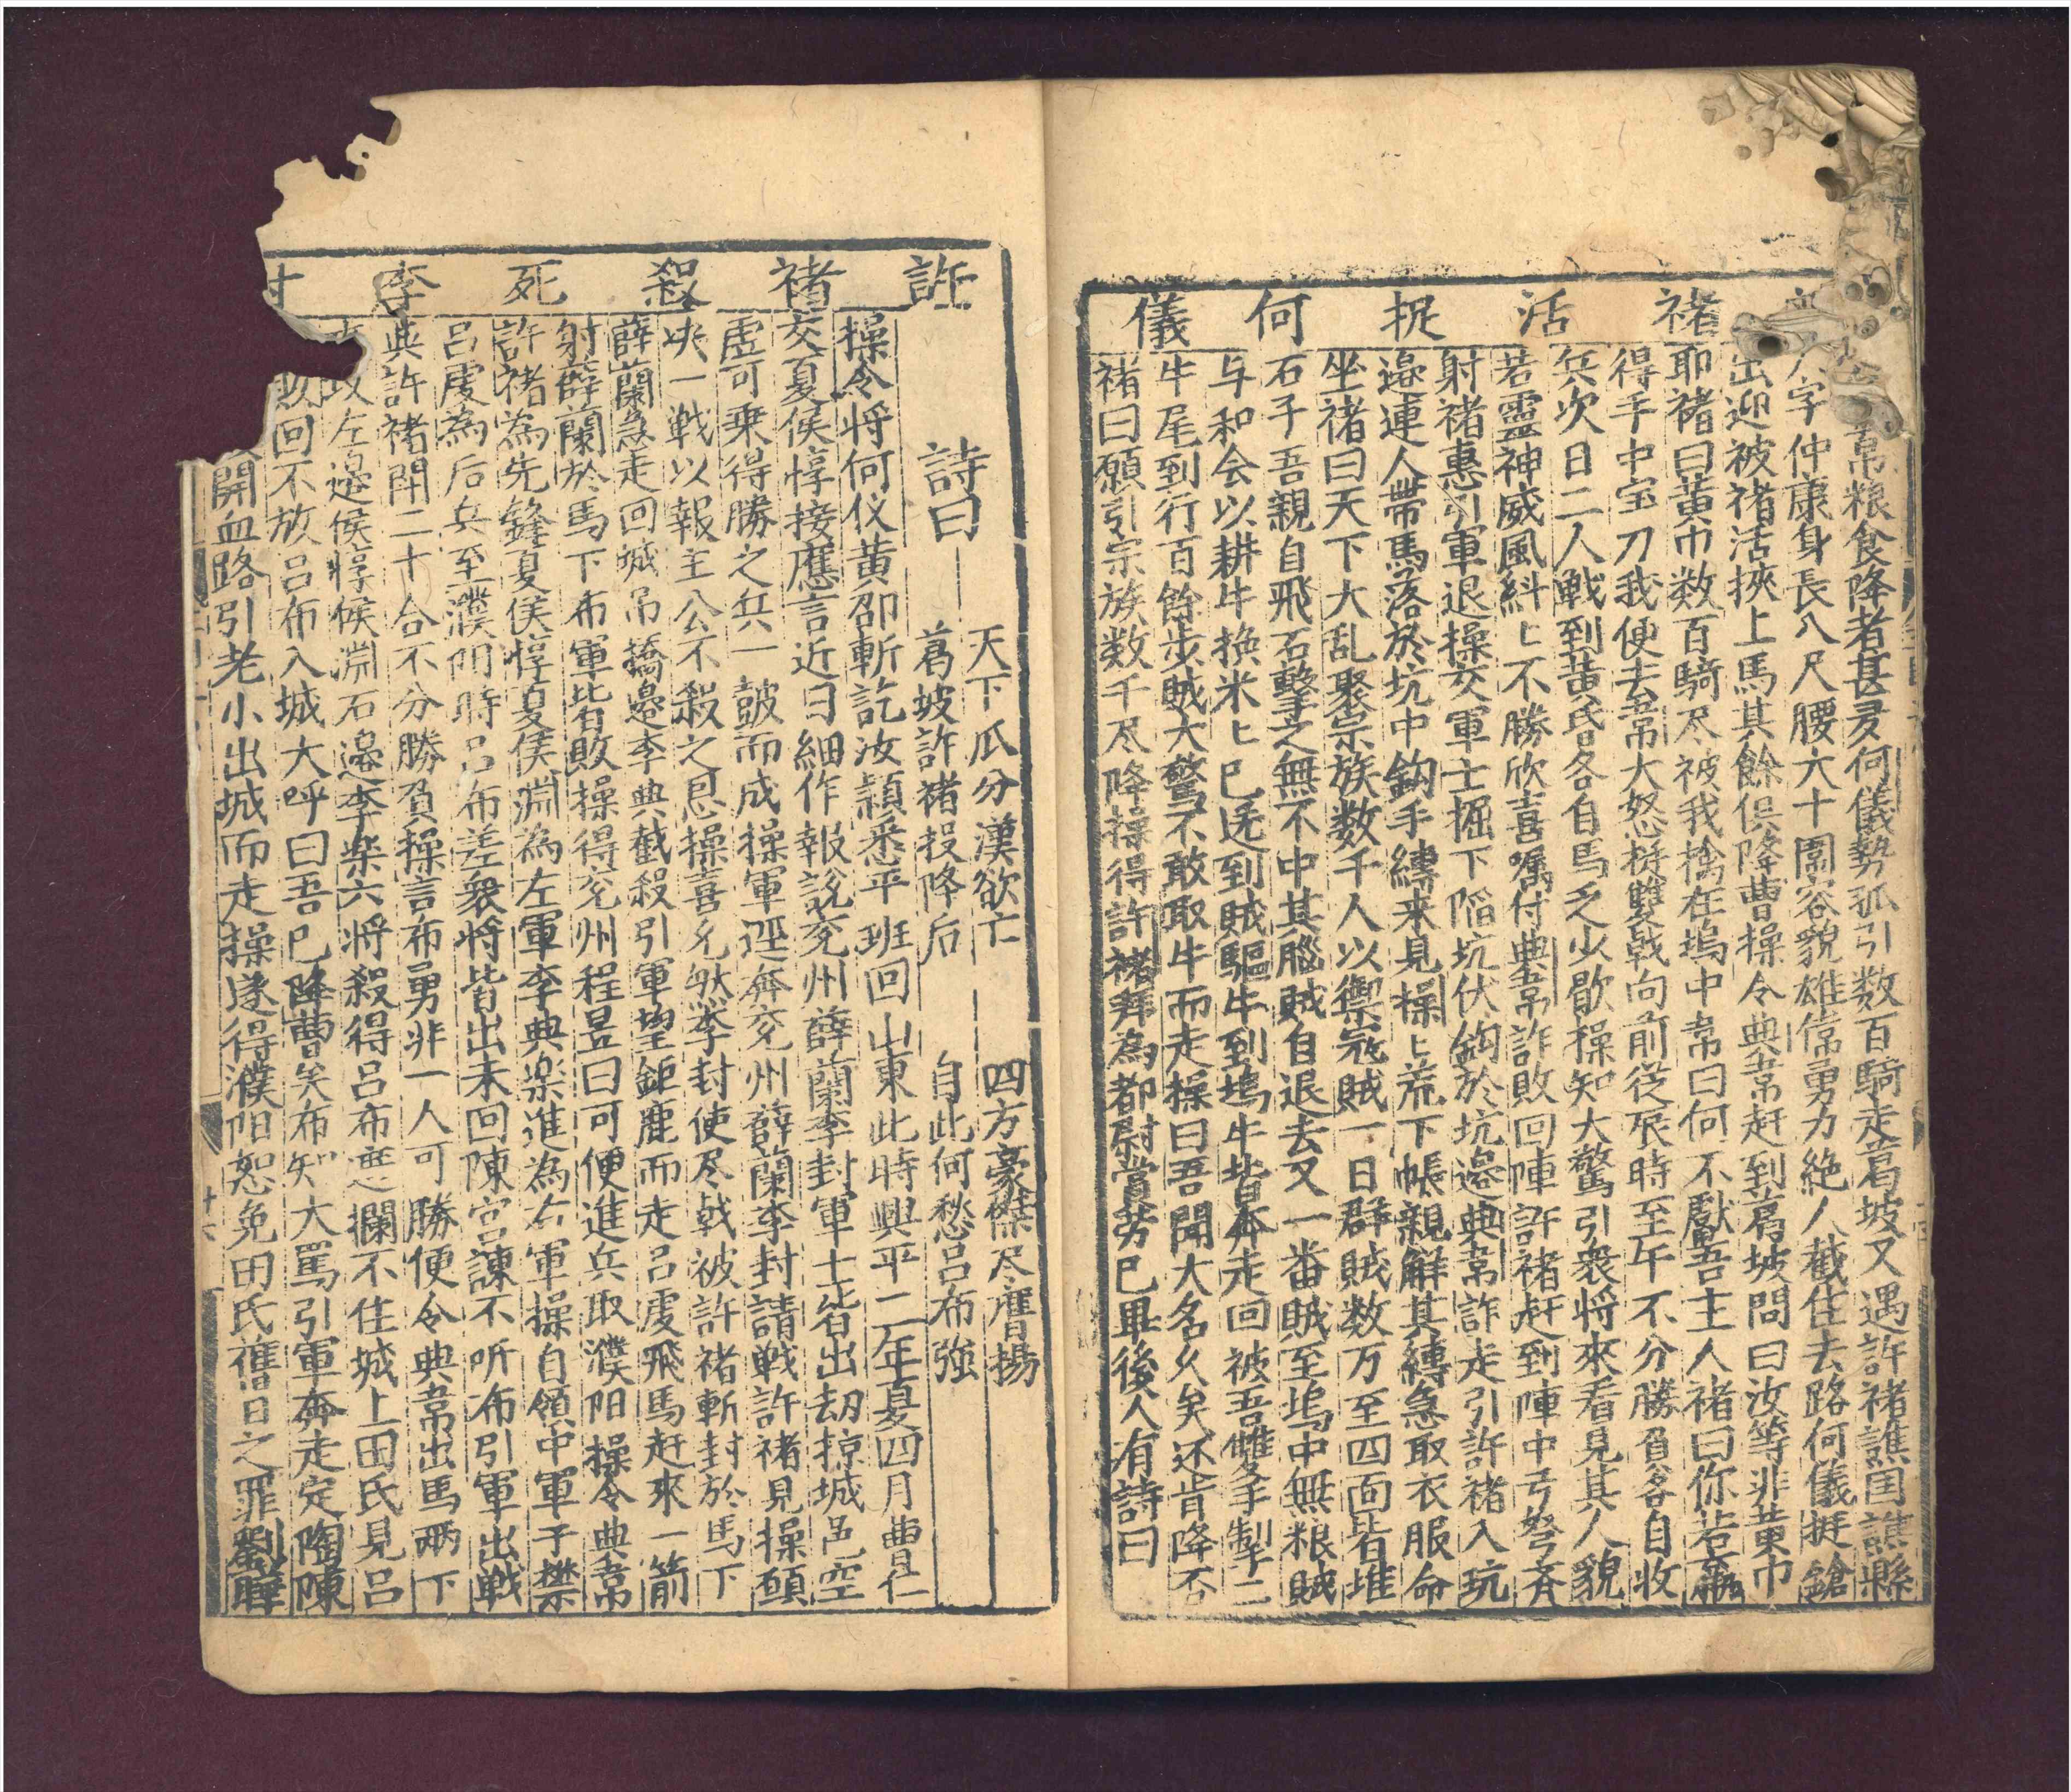 褚活捉何儀
韋粮食降者甚多何儀勢孤引数百騎走葛坡又遇許褚譙国譙縣
人字仲康身長八尺腰大十圍容貌雄偉勇力絶人截住去路何儀挺鎗
出迎被褚活挾上馬其餘俱降曹操令典韋赶到葛坡問曰汝等非黄巾
耶褚曰黄巾数百騎尽被我擒在塢中韋曰何不獻吾主人褚曰你若贏
得手中宝刀我便去韋大怒挺雙戟向前從辰時至午不分勝負各自收
兵次日二人戦到黄昏各自馬乏少歇操知大驚引衆将來看見其人貌
若靈神威風糾〻不勝欣喜嘱付典韋詐敗回陣許褚赶到陣中弓弩斉
射褚惠引軍退操交軍士掘下陥坑伏鈎於坑邉典韋詐走引許褚入坑
邉連人帶馬落於坑中鈎手縛来見操〻荒下帳親觧其縛急取衣服命
坐褚曰天下大乱聚宗族数千人以禦宼賊一日群賊数万至四面皆堆
石子吾親自飛石擊之無不中其腦賊自退去又一畨賊至塢中無粮賊
与和会以耕牛換米〻已送到賊驅牛到塢牛皆奔走回被吾雙手掣二
牛尾到行百餘步賊大驚不敢取牛而走操曰吾聞大名久矣还肯降否
褚曰願引宗族数千尽降操得許褚拜為都尉賞劳已畢後人有詩曰
許褚殺死李封
天下瓜分漢欲亡　四方豪傑尽鹰揚
詩曰
葛坡許褚投降后　自此何愁呂布強
操令将何仪黄邵斬訖汝頴悉平班回山東此時興平二年夏四月曹仁
交夏侯惇接應言近日細作報說兖州薛蘭李封軍士皆出刼掠城邑空
虚可乗得勝之兵一皷而成操軍逕奔兖州薛蘭李封請戦許褚見操願
决一戦以報主公不殺之恩操喜允然李封使尽戟被許褚斬封於馬下
薛蘭急走回城吊橋邉李典截殺引軍望鉅鹿而走呂虔飛馬赶來一箭
射薛蘭於馬下布軍皆敗操得兖州程昱曰可便進兵取濮阳操令典韋
許褚為先鋒夏侯惇夏侯淵為左軍李典楽進為右軍操自領中軍于禁
呂虔為后兵至濮阳時呂布差衆将皆出未回陳宫諫不听布引軍出戦
與許褚閗二十合不分勝負操言布勇非一人可勝便令典韋出馬兩下
攻左邉侯惇侯淵石邉李楽六将殺得呂布遮攔不住城上田氏見呂
敗回不放呂布入城大呼曰吾已降曹矣布知大罵引軍奔走定陶陳
開血路引老小出城而走操遂得濮阳恕免田氏舊日之罪劉曄